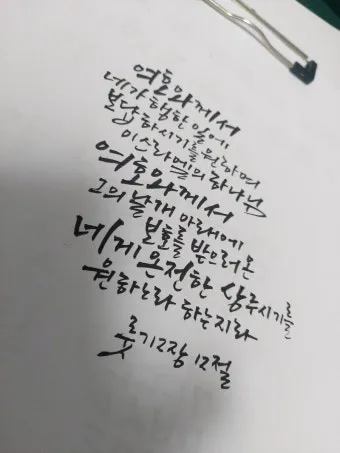 여호와께서
네가 행한 일에
보답하시기를 원하며
이스라엘의 하나님
여호와께서
그의 날개 아래에
보호를 받으러 온
네게 온전한 상 주시기를
원하노라 하는지라
룻기 2장 12절